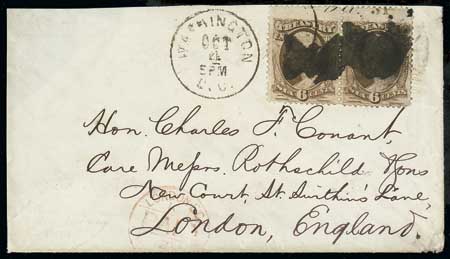 WASHINGTON
OCT
4
5PM
D.C.
TREASURY
6
SIX CENTS
6
Hon. Charles F. Conant,
Care Messrs. Rothschild & Sons
New Court, St. Swithin's Lane,
London, England.